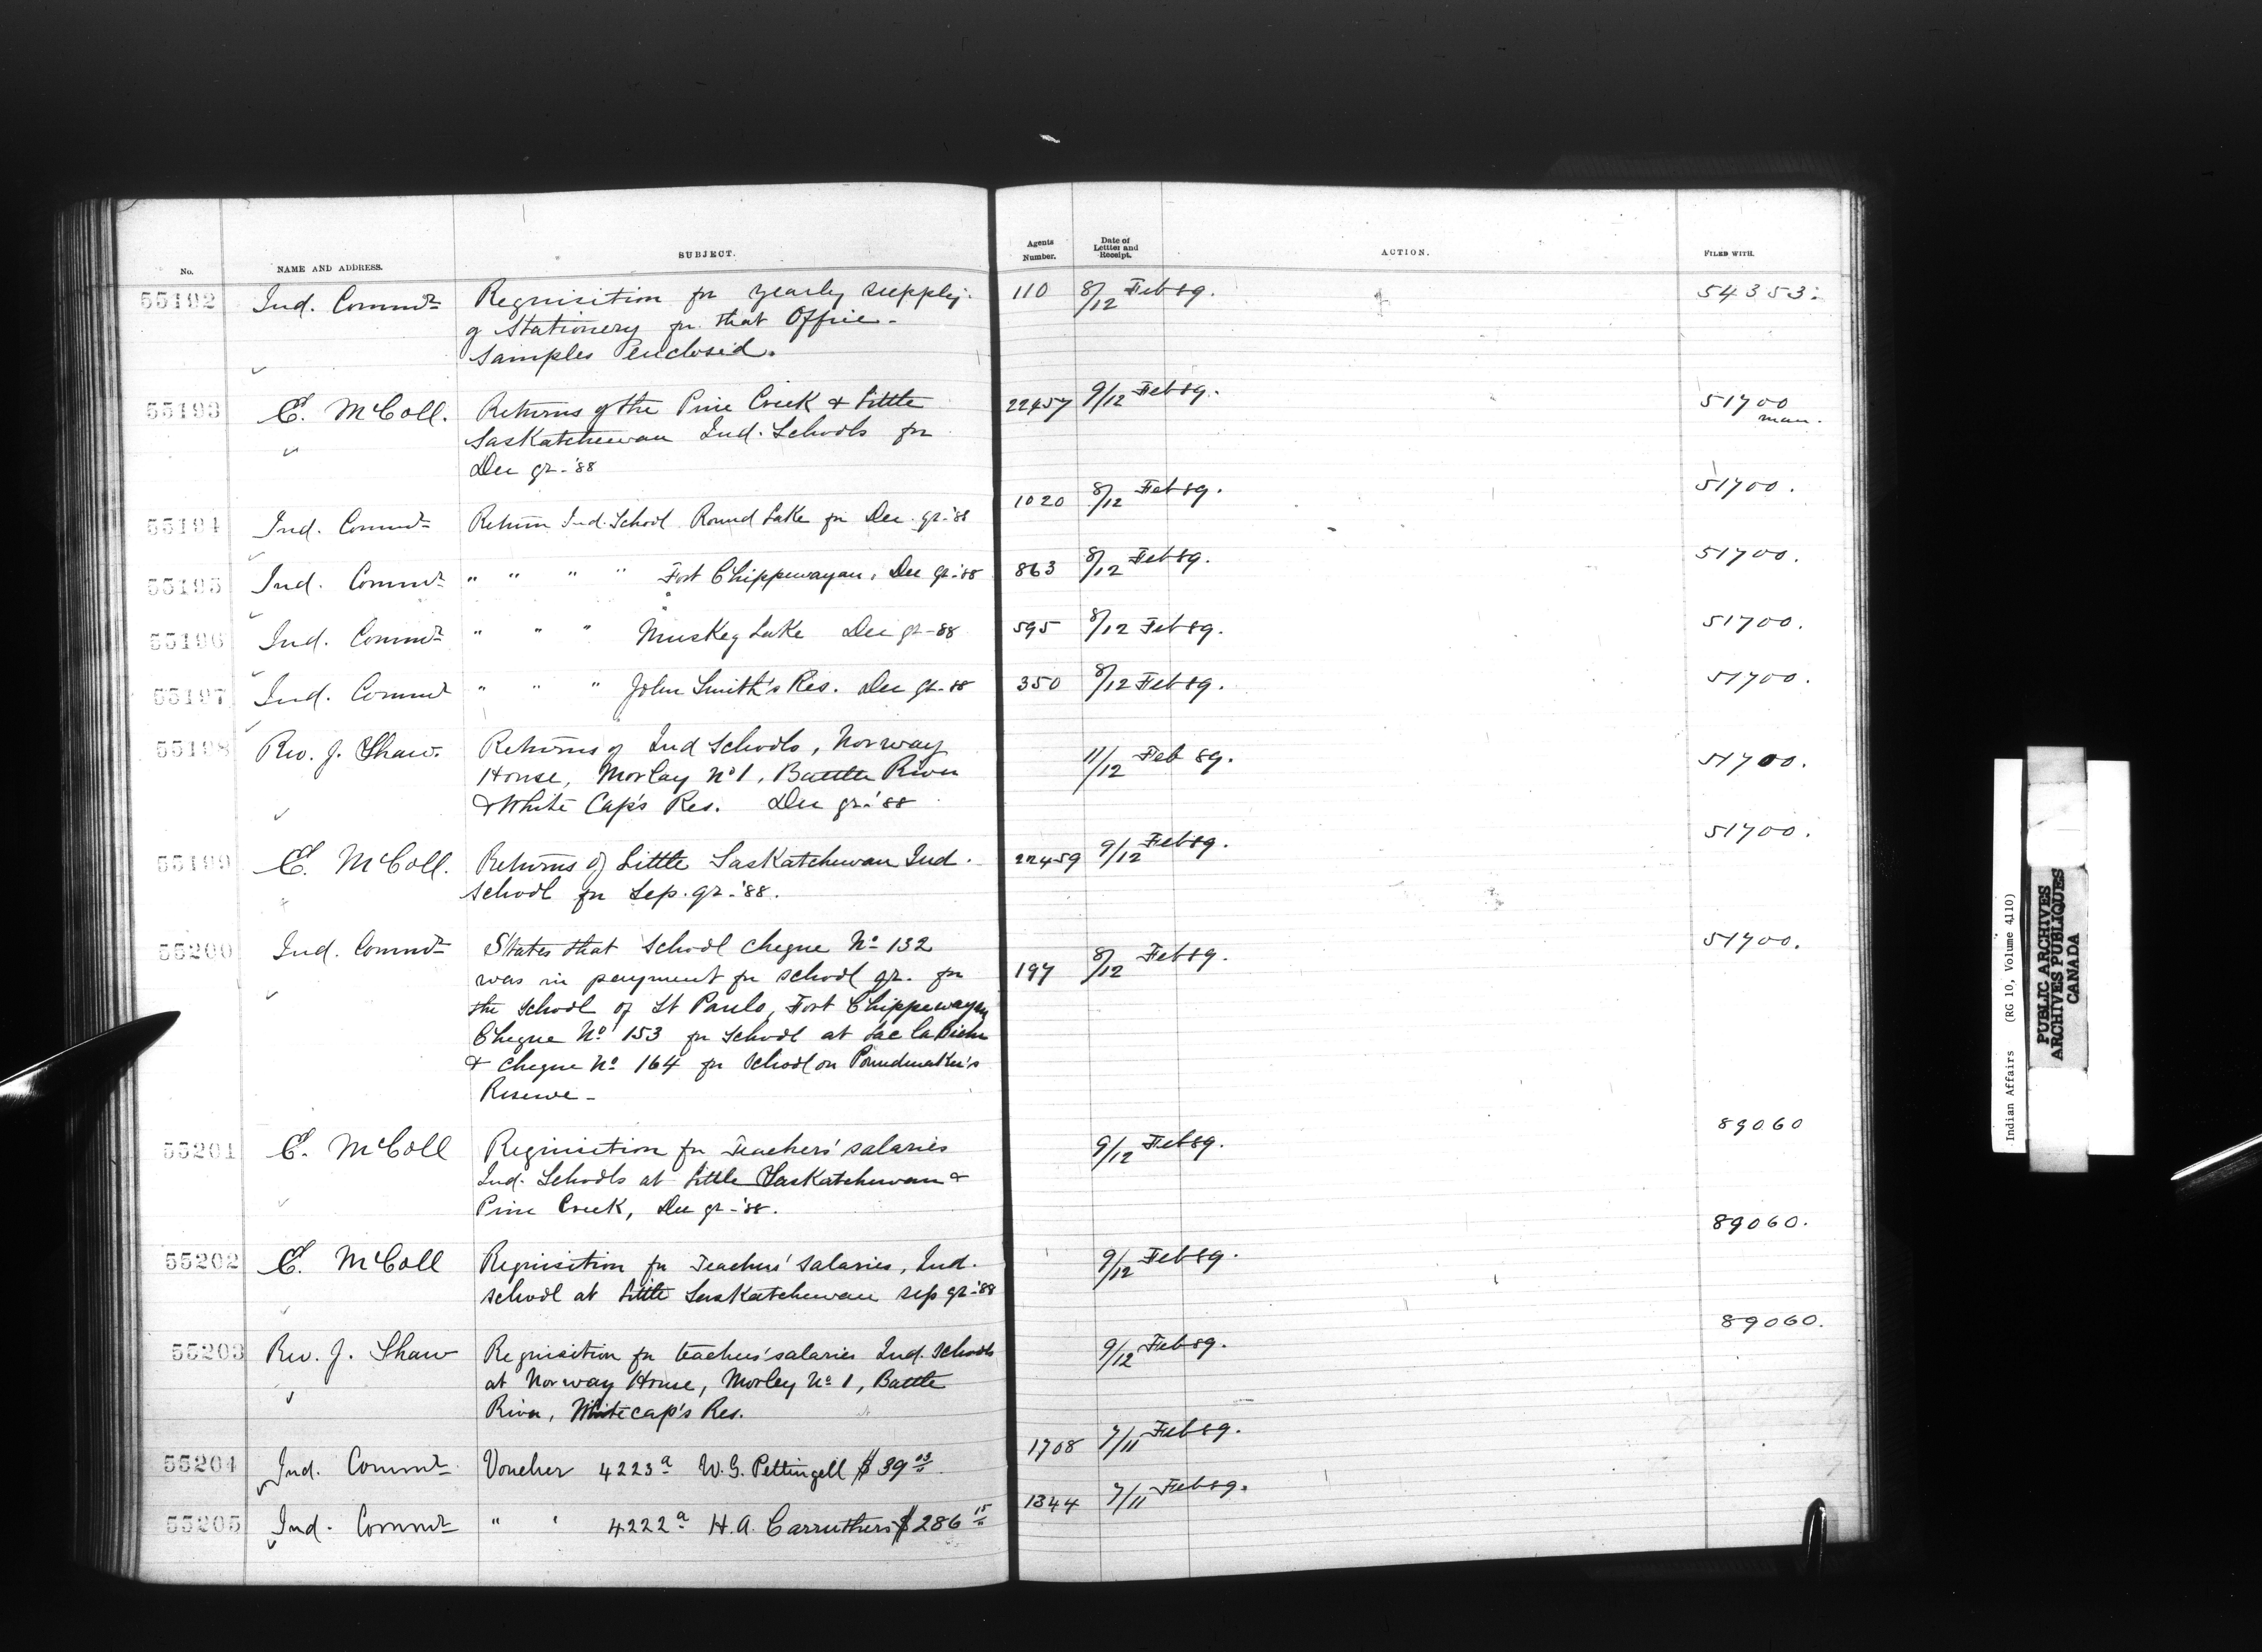 No. NAME AND ADDRESS. SUBJECT. Agents Number. Date of Letter and Receipt. ACTION. FILED WITH.
55192 Ind. Commr Requisition for yearly supply 110 8/12 Feb 89. 54353.
of Stationery for that Office -
Samples enclosed.
55193 E. McColl. Returns of the Pine Creek & Little 22457 9/12 Feb 89. 51700
Saskatchewan Ind. Schools for man.
Dec qr - '88
55194 Ind. Commr Return Ind. School Round Lake for Dec. qr - '88 1020 8/12 Feb 89. 51700.
55195 Ind. Commr " " " " Fort Chippewayan, Dec qr - '88 863 8/12 Feb 89. 51700.
55196 Ind. Commr " " " Muskeg Lake Dec qr - 88 595 8/12 Feb 89. 51700.
55197 Ind. Commr " " " John Smith's Res. Dec qr - 88 350 8/12 Feb 89. 51700.
55198 Rev. J. Shaw. Returns of Ind Schools, Norway 11/12 Feb 89. 51700.
House, Morley No 1, Battle River
& White Cap's Res. Dec qr - '88
55199 E. McColl. Returns of Little Saskatchewan Ind. 22459 9/12 Feb 89. 51700.
School for Sep. qr - '88.
55200 Ind. Commr States that School cheque No 132 197 8/12 Feb 89. 51700.
was in payment for school qr. for
the School of St Pauls, Fort Chippewayan
Cheque No 153 for School at Lac la Biche
& cheque No 164 for School on Poundmaker's
Reserve -
55201 E. McColl Requisition for Teachers' salaries 9/12 Feb 89. 89060
Ind. Schools at Little Saskatchewan &
Pine Creek, Dec qr - '88.
55202 E. McColl Requisition for Teachers' salaries, Ind. 9/12 Feb 89. 89060.
school at Little Saskatchewan sep qr - '88
55203 Rev. J. Shaw Requisition for teachers' salaries Ind. Schools 9/12 Feb 89. 89060.
at Norway House, Morley No 1, Battle
River, Whitecap's Res.
55204 Ind. Commr Voucher 4223a W. G. Pettingell $39 03 1708 7/11 Feb 89.
55205 Ind. Commr " " 4222a H. A. Carruthers $286 15 1344 7/11 Feb 89.
Indian Affairs (RG 10, Volume 4110)
PUBLIC ARCHIVES
ARCHIVES PUBLIQUES
CANADA